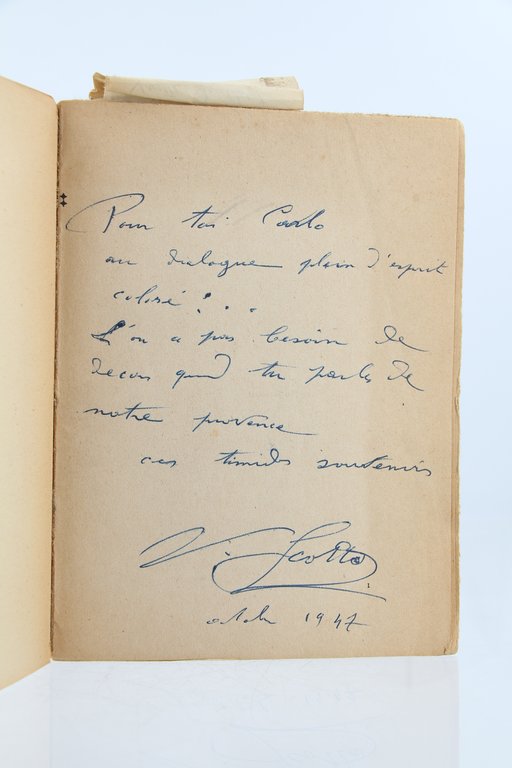 Pour toi Carlo
au dialogue plein d'esprit
coloré ! . . .
L'on a pas besoin de
decors quand tu parles de
notre provence
ces timides souvenirs
V. Scotto
octobre 1947